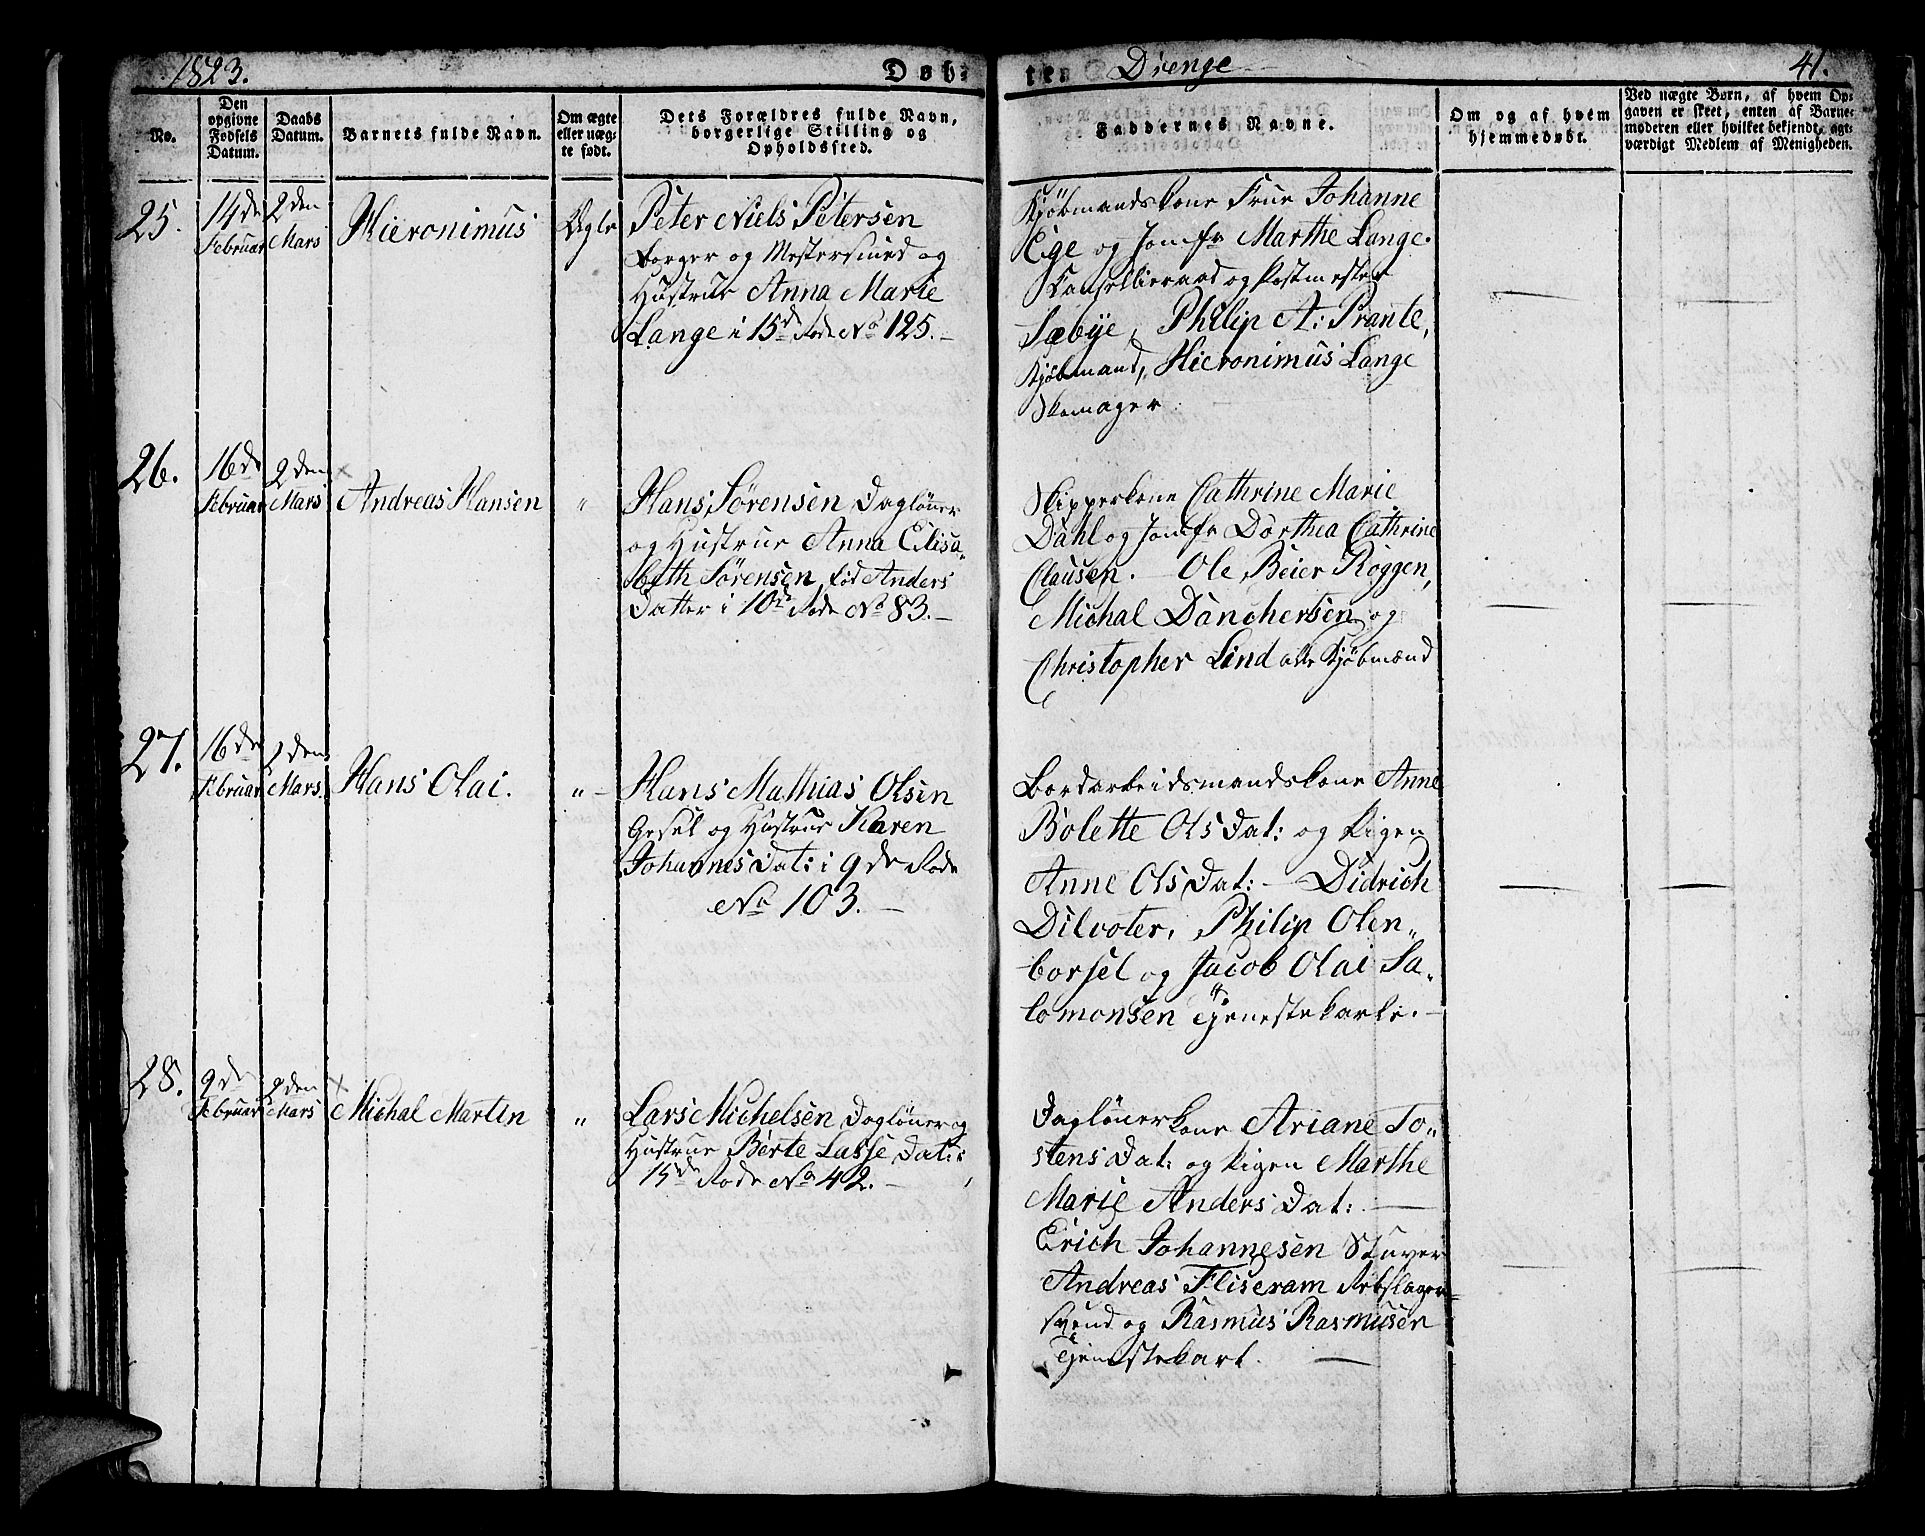 1823.
Døb-
te Drenge
41.
No.
Den
opgivne
Fødsels
Datum.
Daabs
Datum.
Barnets fulde Navn.
Om ægte
eller uæg-
te født.
Dets Forældres fulde Navn,
borgerlige Stilling og
Opholdssted.
Faddernes Navne.
Om og af hvem
hjemmedøbt.
Ved uægte Børn, af hvem Op-
gaven er skeet, enten af Barne-
moderen eller hvilket bekjendt, agt-
værdigt Medlem af Menigheden.
25.
14de
Februar
2den
Mars
Hieronimus
Ægte
Peter Niels Petersen
Borger og Mestersmed og
Hustrue Anna Marie
Lange i 15de Rode No 125.
Kjöbmandskone Frue Johanne
Ege og Jomfr Marthe Lange.
Kansellieraad og Postmester
Sæbye, Philip A: Prante,
Kjöbmand, Hieronimus Lange
Skomager
26.
16de
Februar
2den
Mars
Andreas Hansen
"
Hans Sørensen Daglöner
og Hustrue Anna Elisa-
beth Sørensen fød Anders
Datter i 10de Rode No 83.
Skipperkone Cathrine Marie
Dahl og Jomfr Dorthea Cathrine
Clausen. Ole Beier Röggen,
Michal Danchersen og
Christopher Lind alle Kjöbmænd
27.
16de
Februar
2den
Mars.
Hans Olai.
"
Hans Mathias Olsen
Gesel og Hustrue Karen
Johannes Dat: i 9de Rode
No 103.
Bordarbeidsmandskone Anne
Bolette Ols Dat: og Pigen
Anne Ols Dat: Didrich
Dilvoter, Philip Olen-
borsel og Jacob Olai Sa-
lomonsen Tjenestekarle.
28.
9de
Februar
2den
Mars
Michal Martin
"
Lars Michelsen Daglöner og
Hustrue Berte Lasse Dat: i
15de Rode No 42.
Daglönerkone Ariane To-
stens Dat: og Pigen Marthe
Marie Anders Dat:
Erich Johannesen Stuver
Andreas Fliseram Rebslager-
svend og Rasmus Rasmusen
Tjenestekarl.